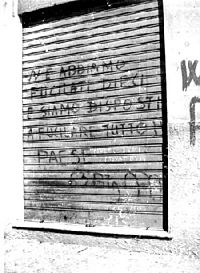 NE ABBIAMO
FUCILATI DIECI
E SIAMO DISPOSTI
A FUCILARE TUTTO IL
PAESE